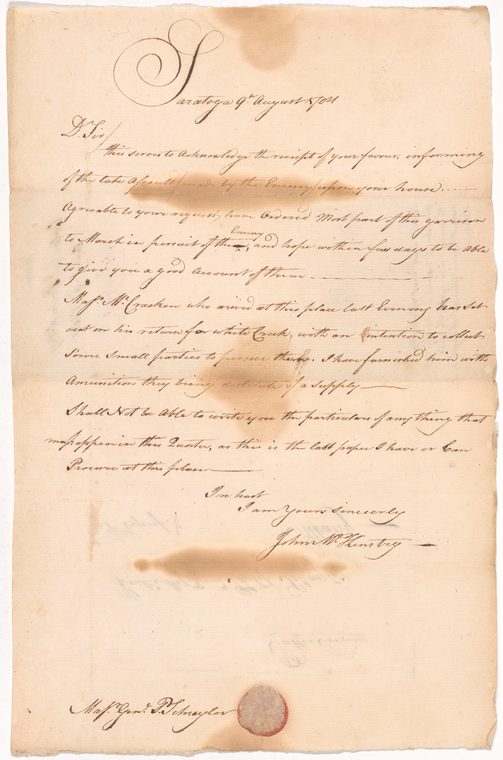 Saratoga 9th August 1781
Dr Sir/
this serves to Acknowledge the receipt of your favour, informing
of the late Assault made by the Enemy upon your house
Agreable to your request, have Ordered Most part of this garrison
to March in pursuit of the Enemy, and hope within few days to be Able
to give you a good Account of them
Majr McCracken who arived at this place last Evening has Set
out on his return for White Creek, with an Intention to collect
Some Small parties to pursue them. I have furnished him with
Amunition they being destitute of a Supply
Shall Not be Able to write you the particulars of any thing that
may happen in this Quarter, as this is the last paper I have or Can
Procure at this place
In hast
I am Yours Sincerely
John McKinstry
Majr Genl P. Schuyler